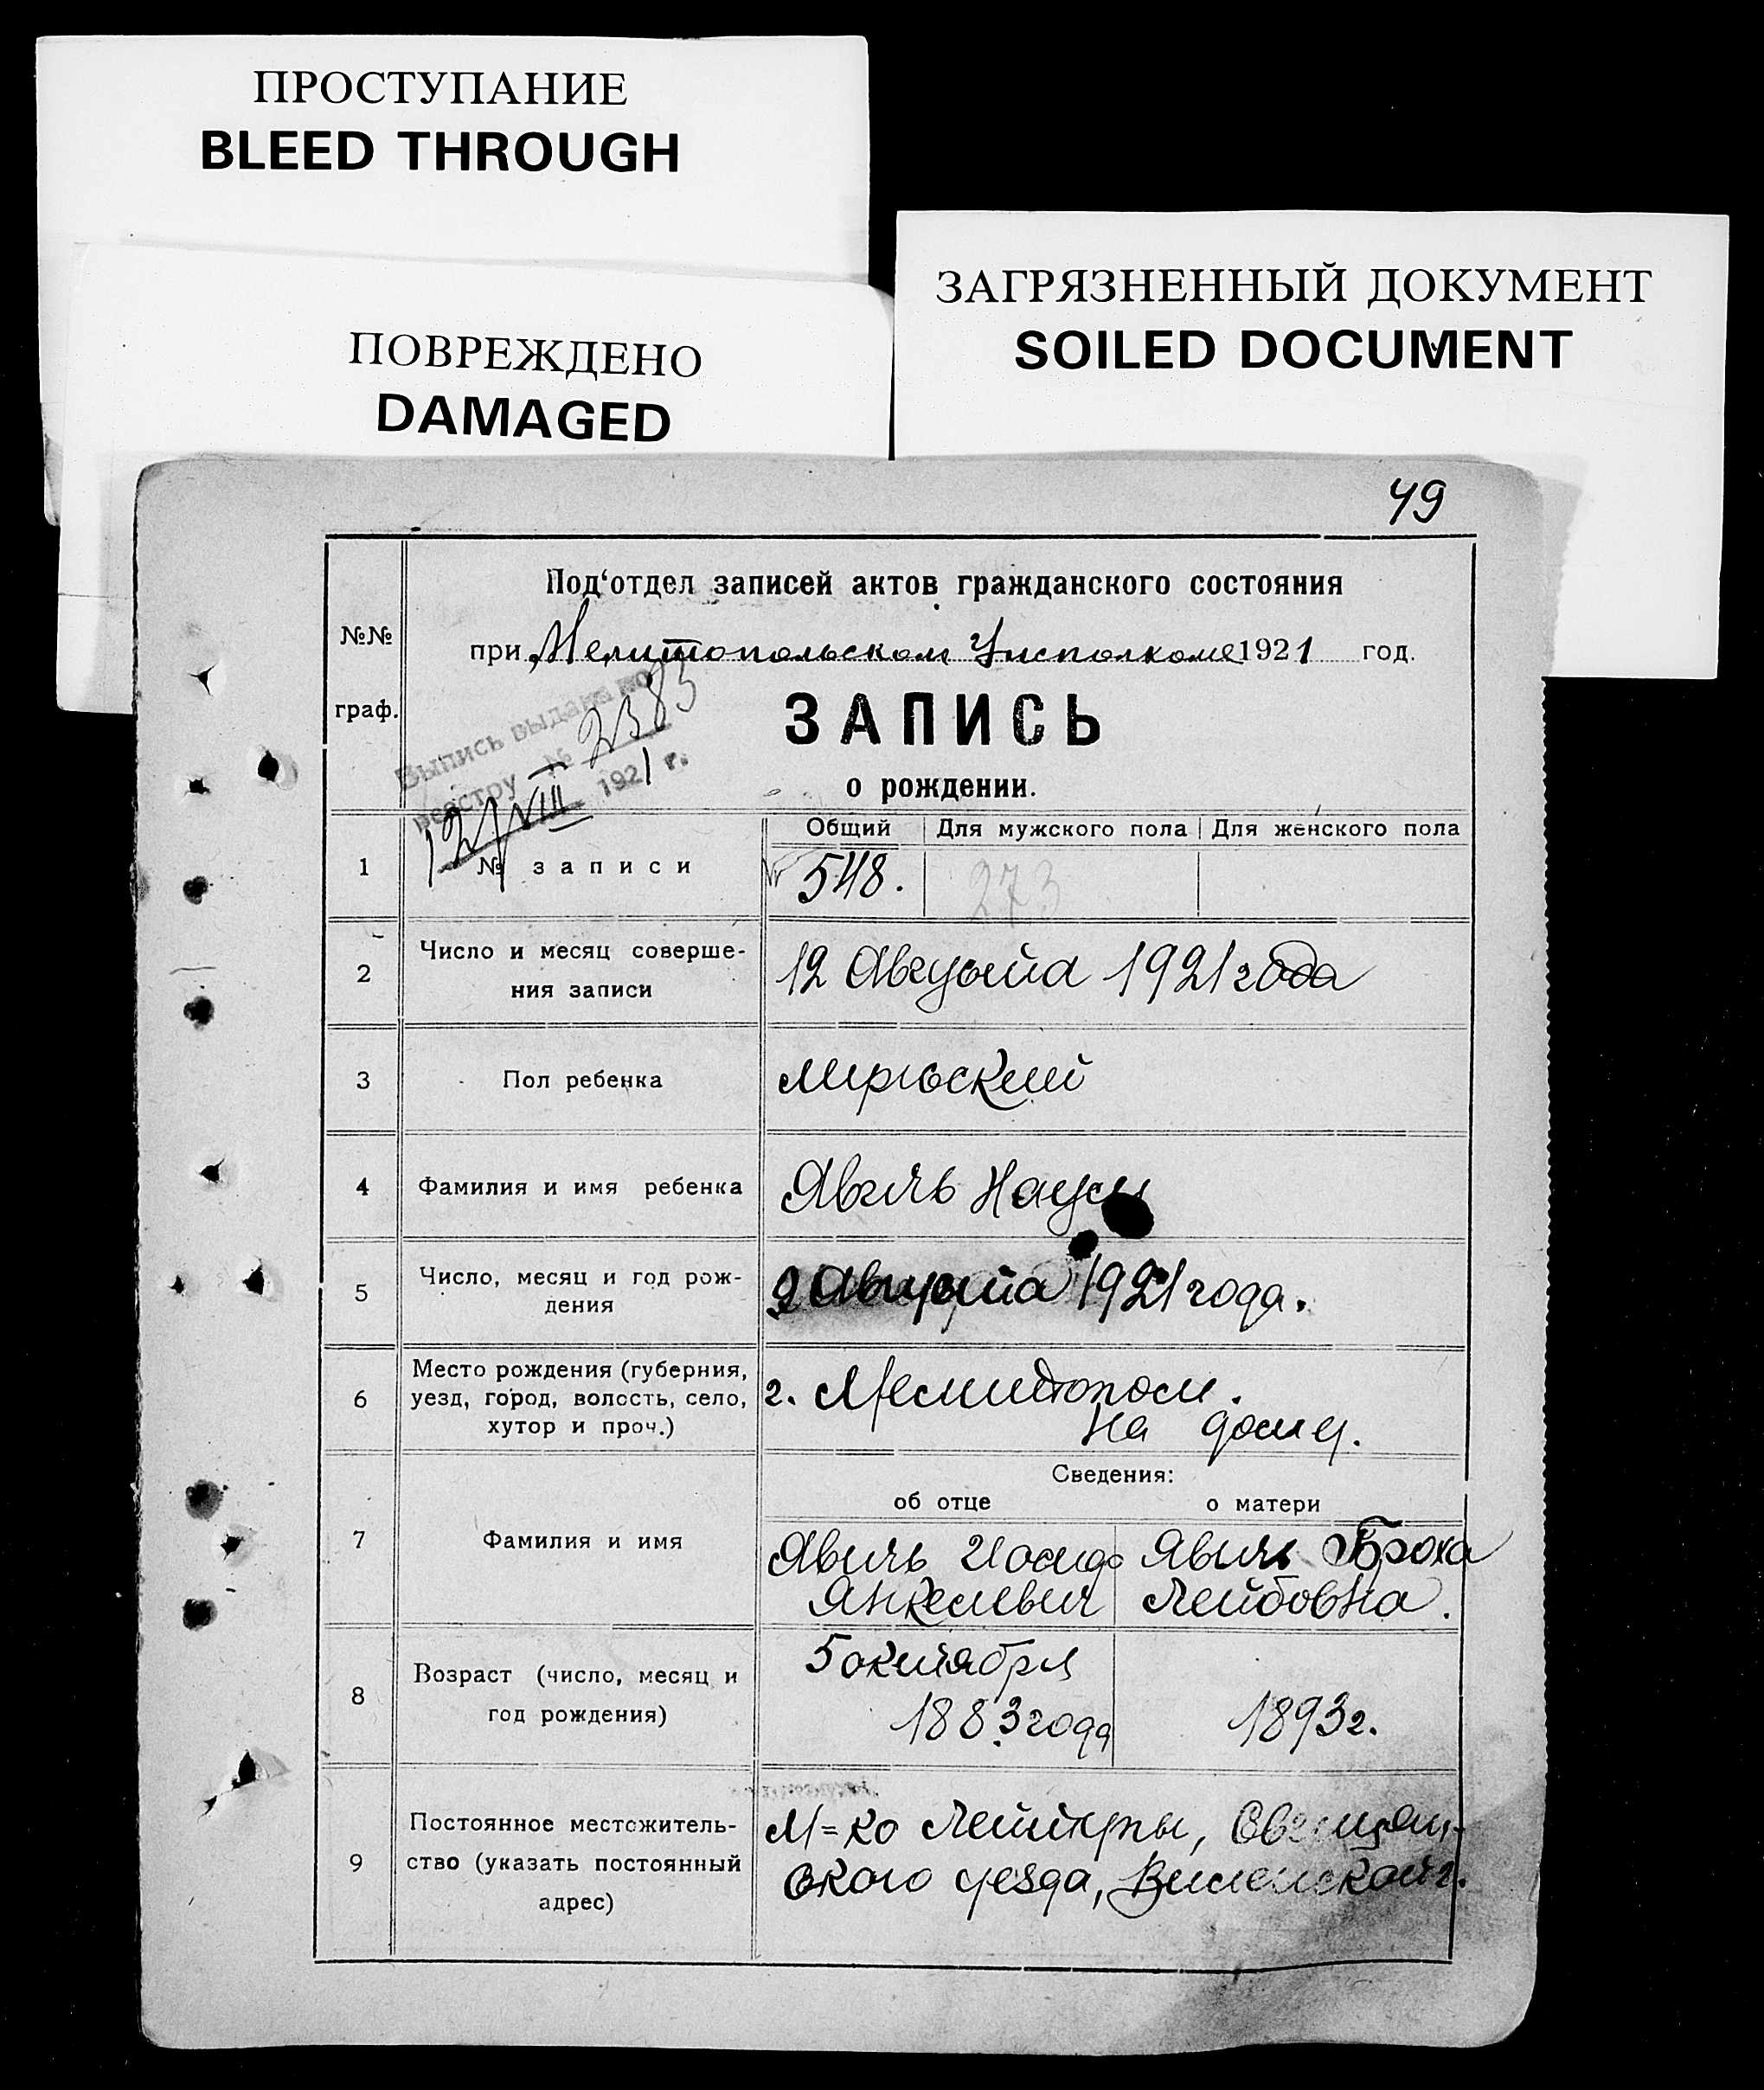 ПРОСТУПАНИЕ
BLEED THROUGH
ПОВРЕЖДЕНО
DAMAGED
ЗАГРЯЗНЕННЫЙ ДОКУМЕНТ
SOILED DOCUMENT
49
№№
граф.
Под‘отдел записей актов гражданского состояния
при Мелитопольском Уисполкоме 1921 год.
Выпись выдана по
реестру № 2385
12/VIII 1921 г.
ЗАПИСЬ
о рождении.
Общий Для мужского пола Для женского пола
1 № записи 548. 273
2 Число и месяц соверше-
ния записи
12 Августа 1921 года
3 Пол ребенка мужеский
4 Фамилия и имя ребенка Явич Наум
5 Число, месяц и год рож-
дения
2 Августа 1921 года.
6 Место рождения (губерния,
уезд, город, волость, село,
хутор и проч.)
г. Мелитополь.
на дому.
Сведения:
об отце о матери
7 Фамилия и имя
Явичь Иосиф Явичь Броха
Янкелевич Лейбовна.
8 Возраст (число, месяц и
год рождения)
5 октября
1883 года 1893 г.
9 Постоянное местожитель-
ство (указать постоянный
адрес)
М=ко Свенцян-
ского уезда, Виленской г.